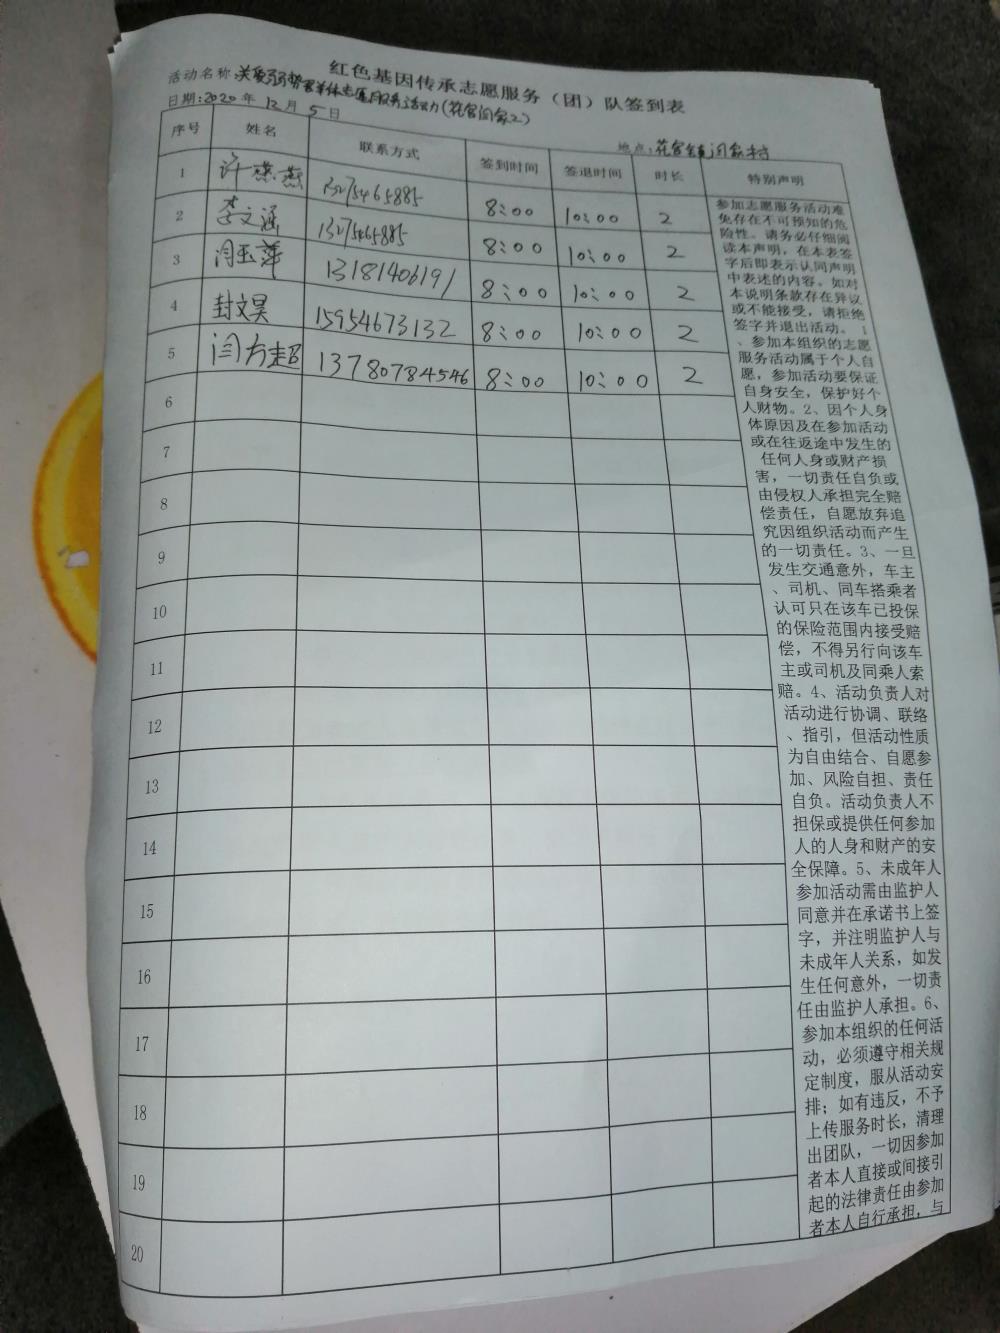 红色基因传承志愿服务（团）队签到表
活动名称:关爱弱势群体志愿服务活动(花官闫家2)
日期:2020年12月5日
地点:花官镇闫家村
序号 姓名 联系方式 签到时间 签退时间 时长 特别声明
1 许燕燕 13275465885 8:00 10:00 2
2 李文涵 13275465885 8:00 10:00 2
3 闫玉萍 13181406191 8:00 10:00 2
4 封文昊 15954673132 8:00 10:00 2
5 闫方超 13780784546 8:00 10:00 2
6
7
8
9
10
11
12
13
14
15
16
17
18
19
20
参加志愿服务活动难
免存在不可预知的危
险性。请务必仔细阅
读本声明，在本表签
字后即表示认同声明
中表述的内容。如对
本说明条款存在异议
或不能接受，请拒绝
签字并退出活动。1
、参加本组织的志愿
服务活动属于个人自
愿，参加活动要保证
自身安全，保护好个
人财物。2、因个人身
体原因及在参加活动
或在往返途中发生的
任何人身或财产损
害，一切责任自负或
由侵权人承担完全赔
偿责任，自愿放弃追
究因组织活动而产生
的一切责任。3、一旦
发生交通意外，车主
、司机、同车搭乘者
认可只在该车已投保
的保险范围内接受赔
偿，不得另行向该车
主或司机及同乘人索
赔。4、活动负责人对
活动进行协调、联络
、指引，但活动性质
为自由结合、自愿参
加、风险自担、责任
自负。活动负责人不
担保或提供任何参加
人的人身和财产的安
全保障。5、未成年人
参加活动需由监护人
同意并在承诺书上签
字，并注明监护人与
未成年人关系，如发
生任何意外，一切责
任由监护人承担。6、
参加本组织的任何活
动，必须遵守相关规
定制度，服从活动安
排；如有违反，不予
上传服务时长，清理
出团队，一切因参加
者本人直接或间接引
起的法律责任由参加
者本人自行承担，与